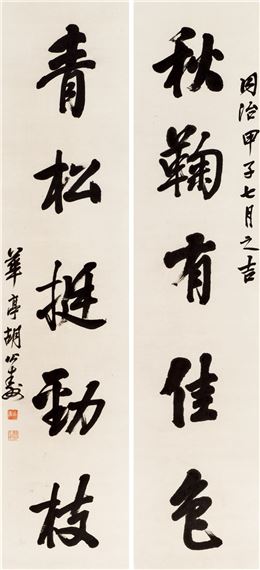 同治甲子七月之吉
秋鞠有佳色
青松挺勁枝
華亭胡公壽